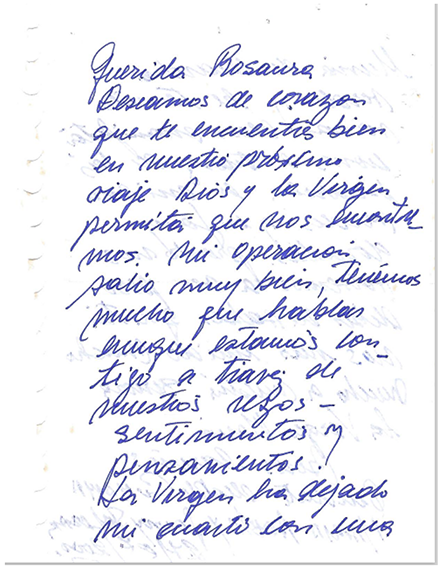 Querida Rosaura
Deseamos de corazon
que te encuentres bien
en nuestro próximo
viaje Dios y la Virgen
permita que nos encontre-
mos. Mi operacion
salio muy bien, tenemos
mucho que hablar
aunque estamos con-
tigo a travez de
nuestros rezos -
sentimientos y
penzamientos!
La Virgen ha dejado
mi cuarto con una